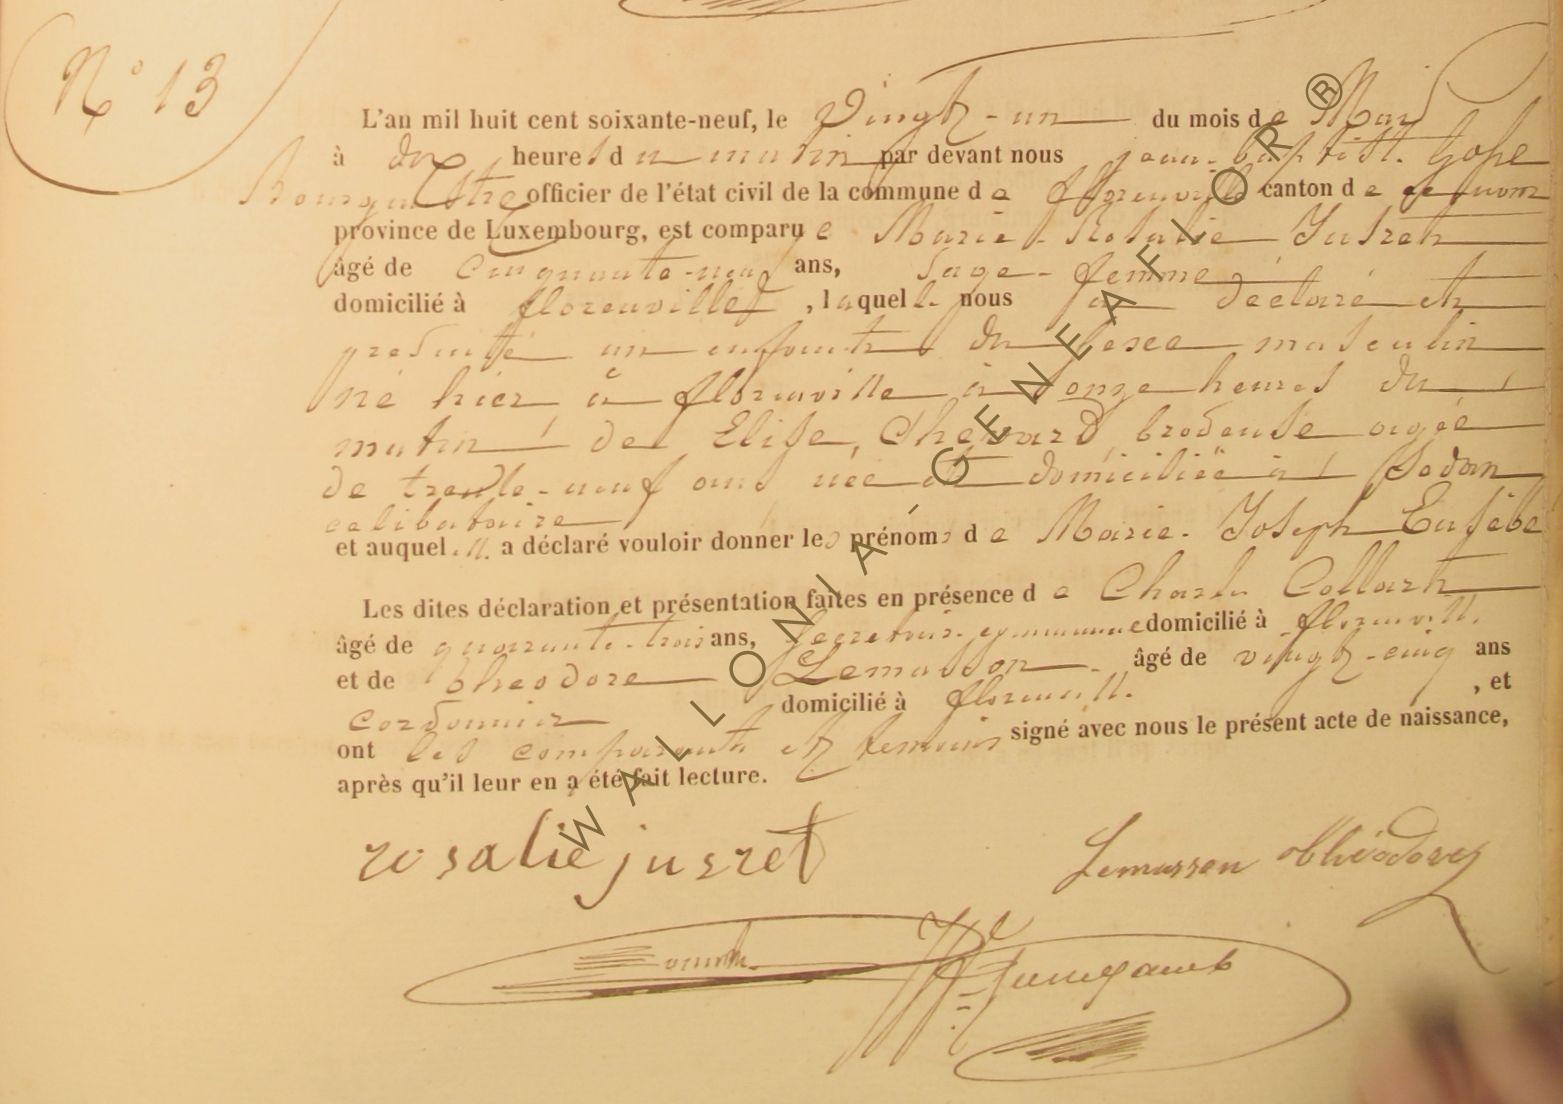 N° 13
L'an mil huit cent soixante-neuf, le Vingt-un du mois de Mars
à dix heures du matin par devant nous jean-baptist.
Bourgmestre officier de l'état civil de la commune de florenville canton de
province de Luxembourg, est comparue Marie-Rosalie Jusret
âgé de cinquante-neuf ans, sage-femme
domicilié à florenville, laquelle nous a déclaré et
présenté un enfant du sexe masculin
né hier à florenville à onze heures du
matin de Elise, brodeuse agée
de trente-neuf ans née et domiciliée à Sedan
celibataire
et auquel il a déclaré vouloir donner les prénoms de Marie-Joseph Eusèbe
Les dites déclaration et présentation faites en présence de Charles Collart
âgé de quarante-trois ans, secretaire domicilié à florenville
et de théodore Lemasson âgé de vingt-cinq ans
cordonnier domicilié à florenville, et
ont les comparants et temoins signé avec nous le présent acte de naissance,
après qu'il leur en a été fait lecture.
rosalie jusret
Lemasson théodore
WALLONIA GENEAFLOR ®